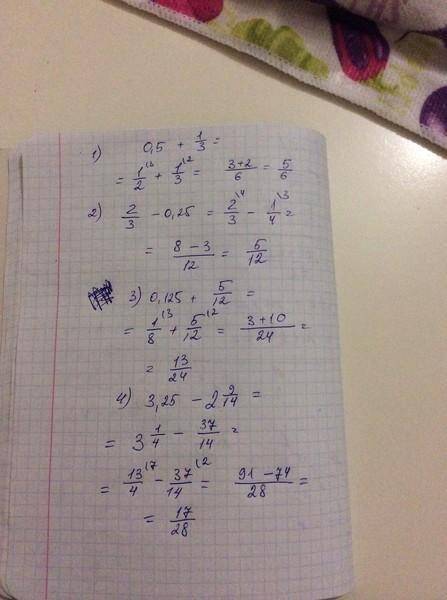 1) 0,5 + 1/3 =
= 1/2 \3 + 1/3 \2 = (3+2)/6 = 5/6
2) 2/3 - 0,25 = 2/3 \4 - 1/4 \3 =
= (8 - 3)/12 = 5/12
3) 0,125 + 5/12 =
= 1/8 \3 + 5/12 \2 = (3+10)/24 =
= 13/24
4) 3,25 - 2 9/14 =
= 3 1/4 - 37/14 =
= 13/4 \7 - 37/14 \2 = (91 - 74)/28 =
= 17/28